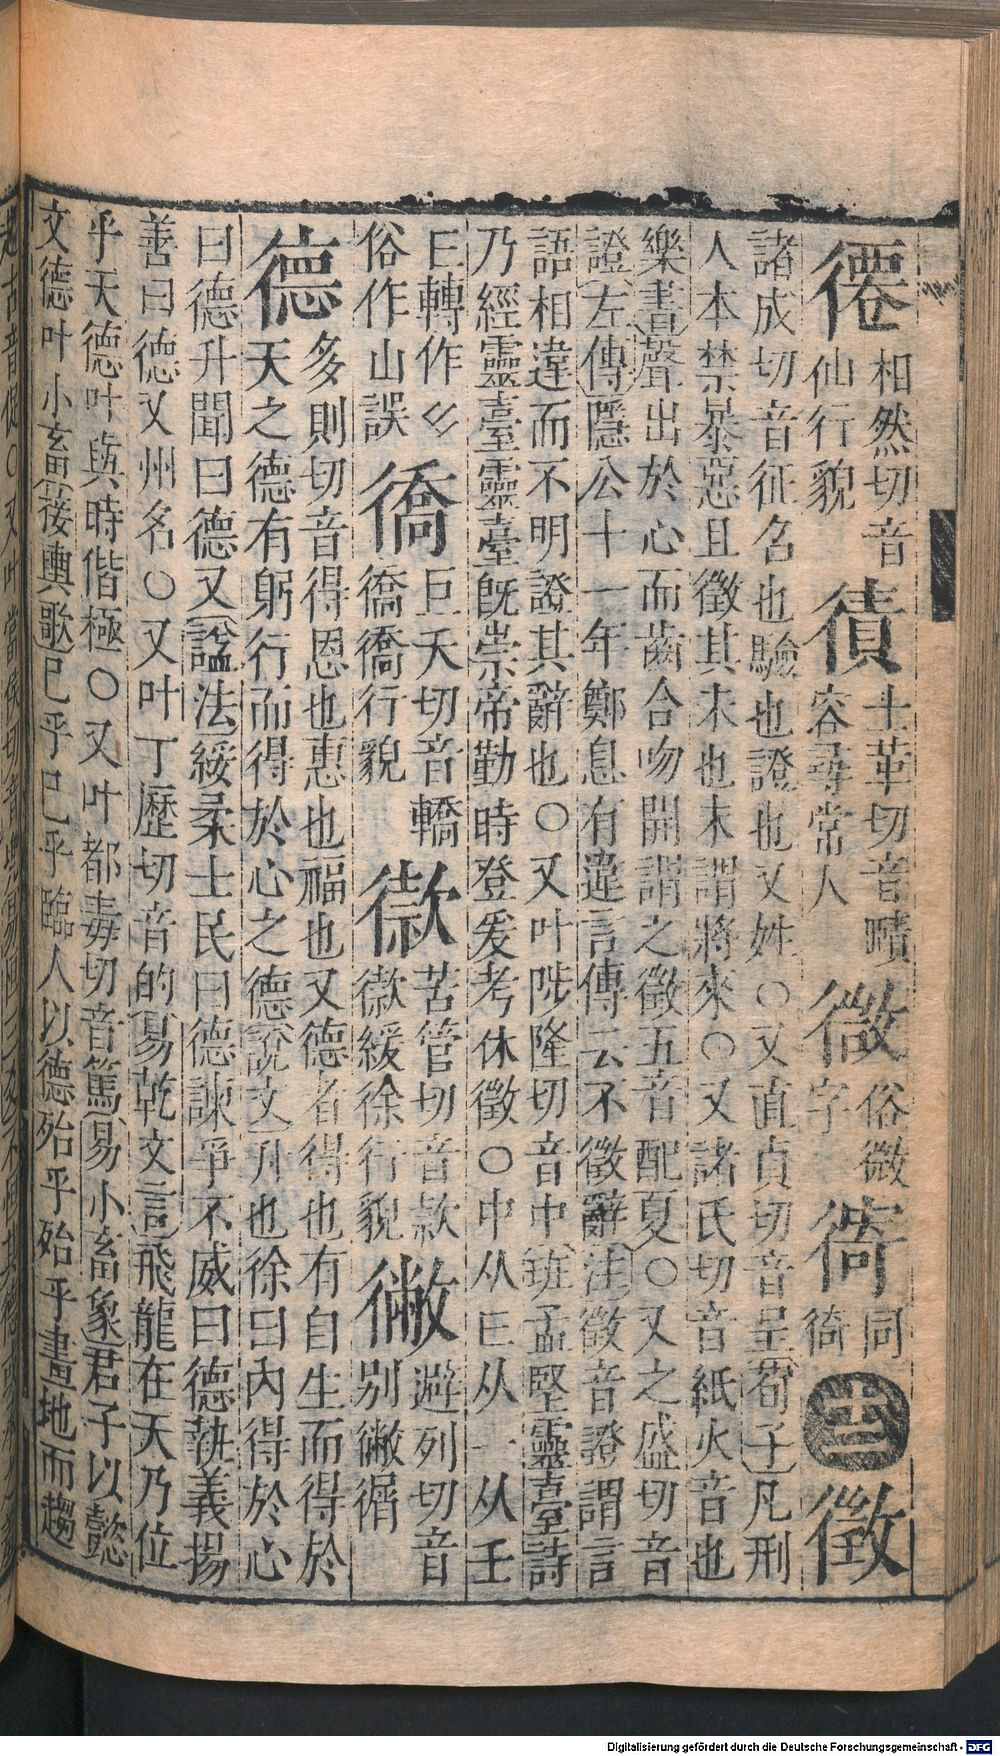 僊 相然切音仙行貌 㣱 土革切音嘖容尋常人 㣲 俗微字 㣆 同徛 十二 徵
諸成切音征名也驗也證也又姓○又直貞切音呈荀子凡刑
人本禁暴惡且徵其未也未謂將來○又諸氏切音紙火音也
樂書聲出於心而齒合吻開謂之徵五音配夏○又之盛切音
證左傳隱公十一年鄭息有違言傳云不徵辭注徵音證謂言
語相違而不明證其辭也○又叶陟隆切音中班孟堅靈臺詩
乃經靈臺靈臺旣崇帝勤時登爰考休徵○中从㠯从一从壬
㠯轉作 俗作山誤 徼 巨天切音轎徼徼行貌 款 苦管切音款 緩徐行貌 徶 避列切音別徶徟
多則切音得恩也惠也福也又德者得也有自生而得於
德 天之德有躬行而得於心之德說文升也徐曰內得於心
曰德升聞曰德又諡法綏柔士民曰德諫爭不威曰德執義揚
善曰德又州名○又叶丁歷切音的易乾文言飛龍在天乃位
乎天德叶與時偕極○又叶都毒切音篤易小畜象君子以懿
文德叶小畜接輿歌已乎已乎臨人以德殆乎殆乎畫地而趨